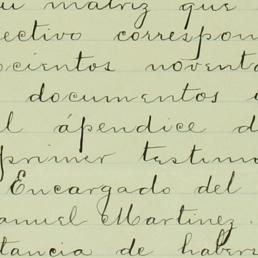 su matriz que
ectivo correspon
ocientos novent
documentos
l ápendice d
primer testimo
Encargado del
anuel Martinez.
tancia de habers